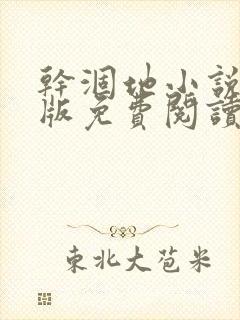 幹涸地小說
版免費閱讀
東北大苞米